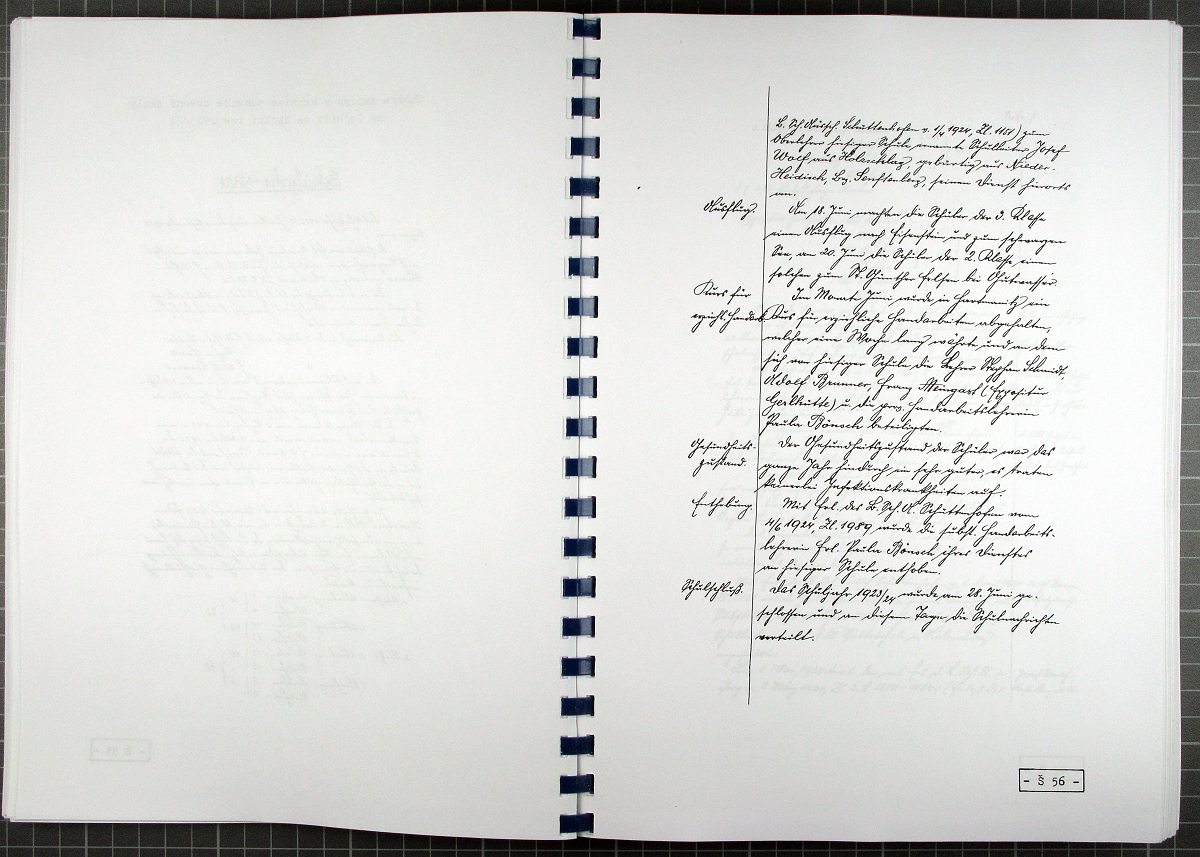 B. Sch. Aussch. Schüttenhofen v. 1/4 1924, Zl. 1151) zum
Oberlehrer hiesiger Schule ernannte Schulleiter Josef
Wolf aus Holzschlag, gebürtig aus Nieder-
Heidisch, Bez. Senftenberg, seinen Dienst hierorts
an.
Ausflug. Am 18. Juni machten die Schüler der 3. Klasse
einen Ausflug nach Eisenstein und zum schwarzen
See, am 20. Juni die Schüler der 2. Klasse einen
solchen zum St. Günther Felsen bei Gutwasser.
Kurs für Im Monate Juni wurde in Hartmanitz ein
erziehl. Handarb. Kurs für erziehliche Handarbeiten abgehalten,
welcher eine Woche lang währte und an dem
sich von hiesiger Schule die Lehrer Stephan Schmidt,
Adolf Brunner, Franz Weingart (Expositur
Gerlhütte) u. die prov. Handarbeitslehrerin
Paula Bönsch beteiligten.
Gesundheits- Der Gesundheitszustand der Schüler war das
zustand. ganze Jahr hindurch ein sehr guter, es traten
keinerlei Infektionskrankheiten auf.
Enthebung. Mit Erl. des B. Sch. A. Schüttenhofen vom
4/6 1924, Zl. 1989 wurde die subst. Handarbeits-
lehrerin Frl. Paula Bönsch ihres Dienstes
an hiesiger Schule enthoben.
Schulschluß. Das Schuljahr 1923/24 wurde am 28. Juni ge-
schlossen und an diesem Tage die Schulnachrichten
verteilt.
- Š 56 -